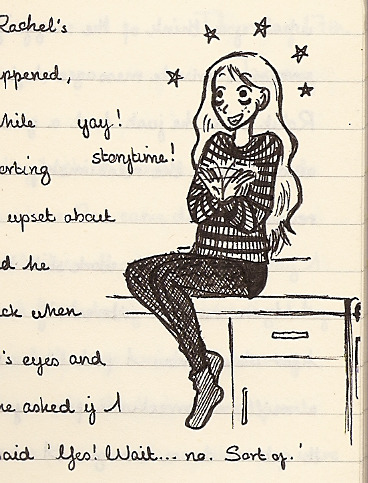 Rachel's
appened,
while yay!
storytime!
orting
upset about
d he
ck when
's eyes and
he asked if I
said 'Yes! Wait... no. Sort of.'